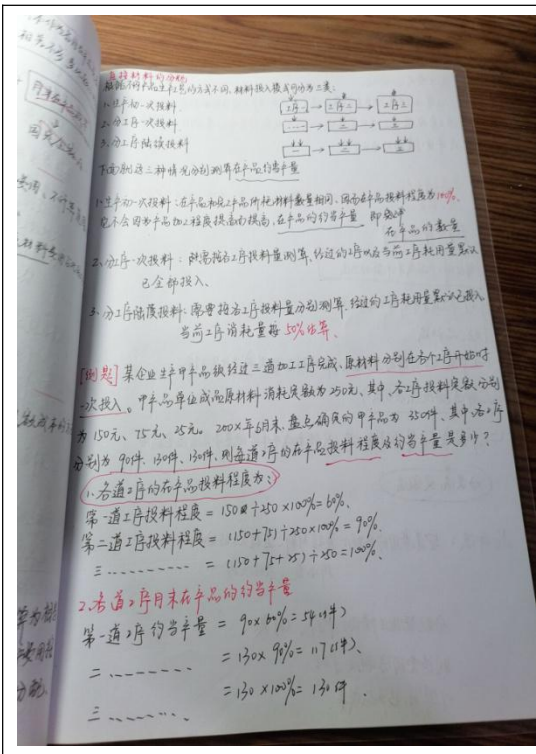 直接材料的分配
根据不同产品生产工艺的方式不同,材料投入模式可分为三类:
1、生产初一次投料
工序一 → 工序二 → 工序三
2、分工序一次投料
3、分工序陆续投料
一 → 二 → 三
下面就这三种情况分别测算在产品约当产量
1、生产初一次投料:在产品和完工产品所耗材料数量相同、因而在产品投料程度为100%,
也不会因为产品加工程度提高而提高、在产品的约当产量 即
在产品的数量
2、分工序一次投料: 按各工序投料量测算、经过的工序以及当前工序耗用量默认
已全部投入、
3、分工序陆续投料:需要按各工序投料量分别测算、经过的工序耗用量默认已投入、
当前工序消耗量按50%估算、
[例题] 某企业生产甲产品须经过三道加工工序完成、原材料分别在各个工序开始时
一次投入。甲产品单位成品原材料消耗定额为250元、其中、各工序投料定额分别
为150元、75元、25元。200X年6月末、盘点确定的甲产品为350件、其中、各工序
分别为90件、130件、130件、则每道工序的在产品投料程度及约当产量是多少?
1、各道工序的在产品投料程度为:
第一道工序投料程度 = 150÷250×100%=60%、
第二道工序投料程度 = (150+75)÷250×100%=90%、
三 ........... = (150+75+25)÷250=100%、
2、各道工序月末在产品的约当产量
第一道工序约当产量 = 90×60%=54(件)
二 ......... = 130×90%=117(件)、
三 ......... = 130×100%=130件.